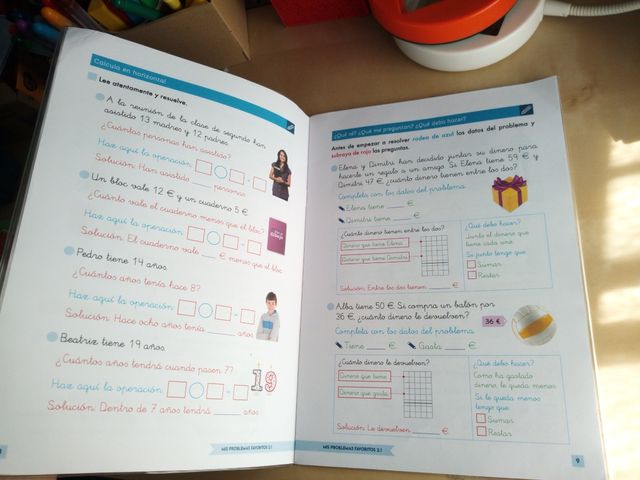 Calcula en horizontal
Lee atentamente y resuelve.
A la reunión de la clase de segundo han
asistido 13 madres y 12 padres.
¿Cuántas personas han asistido?
Haz aquí la operación:
=
Solución: Han asistido ____ personas.
Un bloc vale 12 € y un cuaderno 5 €.
¿Cuánto vale el cuaderno menos que el bloc?
Haz aquí la operación:
=
Solución: El cuaderno vale ____ € menos que el bloc.
Pedro tiene 14 años.
¿Cuántos años tenía hace 8?
Haz aquí la operación:
=
Solución: Hace ocho años tenía ____ años.
Beatriz tiene 19 años.
¿Cuántos años tendrá cuando pasen 7?
Haz aquí la operación:
=
19
Solución: Dentro de 7 años tendrá ____ años.
MIS PROBLEMAS FAVORITOS 2.1
¿Qué sé? ¿Qué me preguntan? ¿Qué debo hacer?
Antes de empezar a resolver rodea de azul los datos del problema y
subraya de rojo las preguntas.
Elena y Dimitri han decidido juntar su dinero para
hacerle un regalo a un amigo. Si Elena tiene 59 € y
Dimitri 47 €, ¿cuánto dinero tienen entre los dos?
Completa con los datos del problema.
Elena tiene ____ €
Dimitri tiene ____ €
¿Cuánto dinero tienen entre los dos?
Dinero que tiene Elena
Dinero que tiene Dimitri
Solución: Entre los dos tienen ____ €
¿Qué debo hacer?
Junto el dinero que
tiene cada uno.
Si junto tengo que:
Sumar
Restar
Alba tiene 50 €. Si compra un balón por
36 €, ¿cuánto dinero le devuelven?
36 €
Completa con los datos del problema.
Tiene ____ € Gasta ____ €
¿Cuánto dinero le devuelven?
Dinero que tiene
Dinero que gasta
Solución: Le devuelven ____ €
¿Qué debo hacer?
Como ha gastado
dinero, le queda menos.
Si le queda menos
tengo que:
Sumar
Restar
MIS PROBLEMAS FAVORITOS 2.1
9